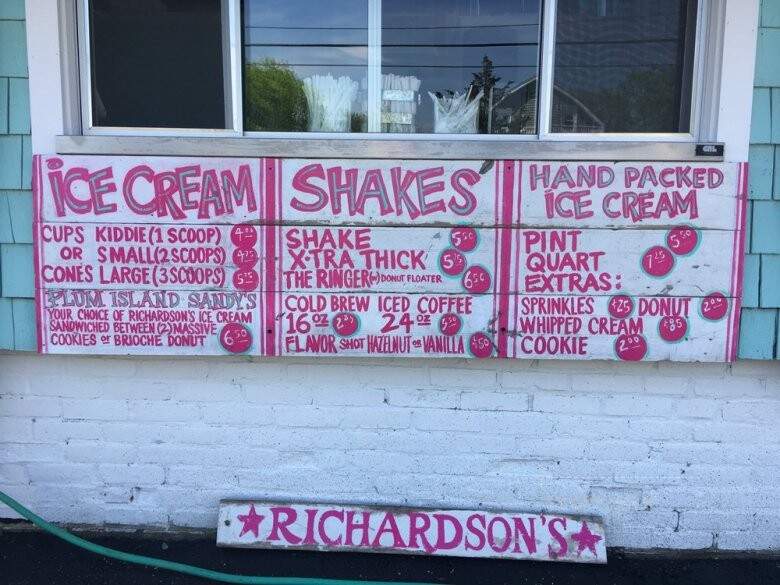 ICE CREAM
CUPS KIDDIE (1 SCOOP)
OR SMALL (2 SCOOPS) 4.75
CONES LARGE (3 SCOOPS) 5.25
PLUM ISLAND SANDY'S
YOUR CHOICE OF RICHARDSON'S ICE CREAM
SANDWICHED BETWEEN (2) MASSIVE
COOKIES OR BRIOCHE DONUT 6.50
SHAKES
SHAKE 5.50
X-TRA THICK 5.75
THE RINGER (W) DONUT FLOATER 6.50
COLD BREW ICED COFFEE
16 OZ 24 OZ
FLAVOR SHOT HAZELNUT OR VANILLA .50
HAND PACKED
ICE CREAM
PINT 5.50
QUART 7.25
EXTRAS:
SPRINKLES .25 DONUT 2.00
WHIPPED CREAM .85
COOKIE 2.00
RICHARDSON'S